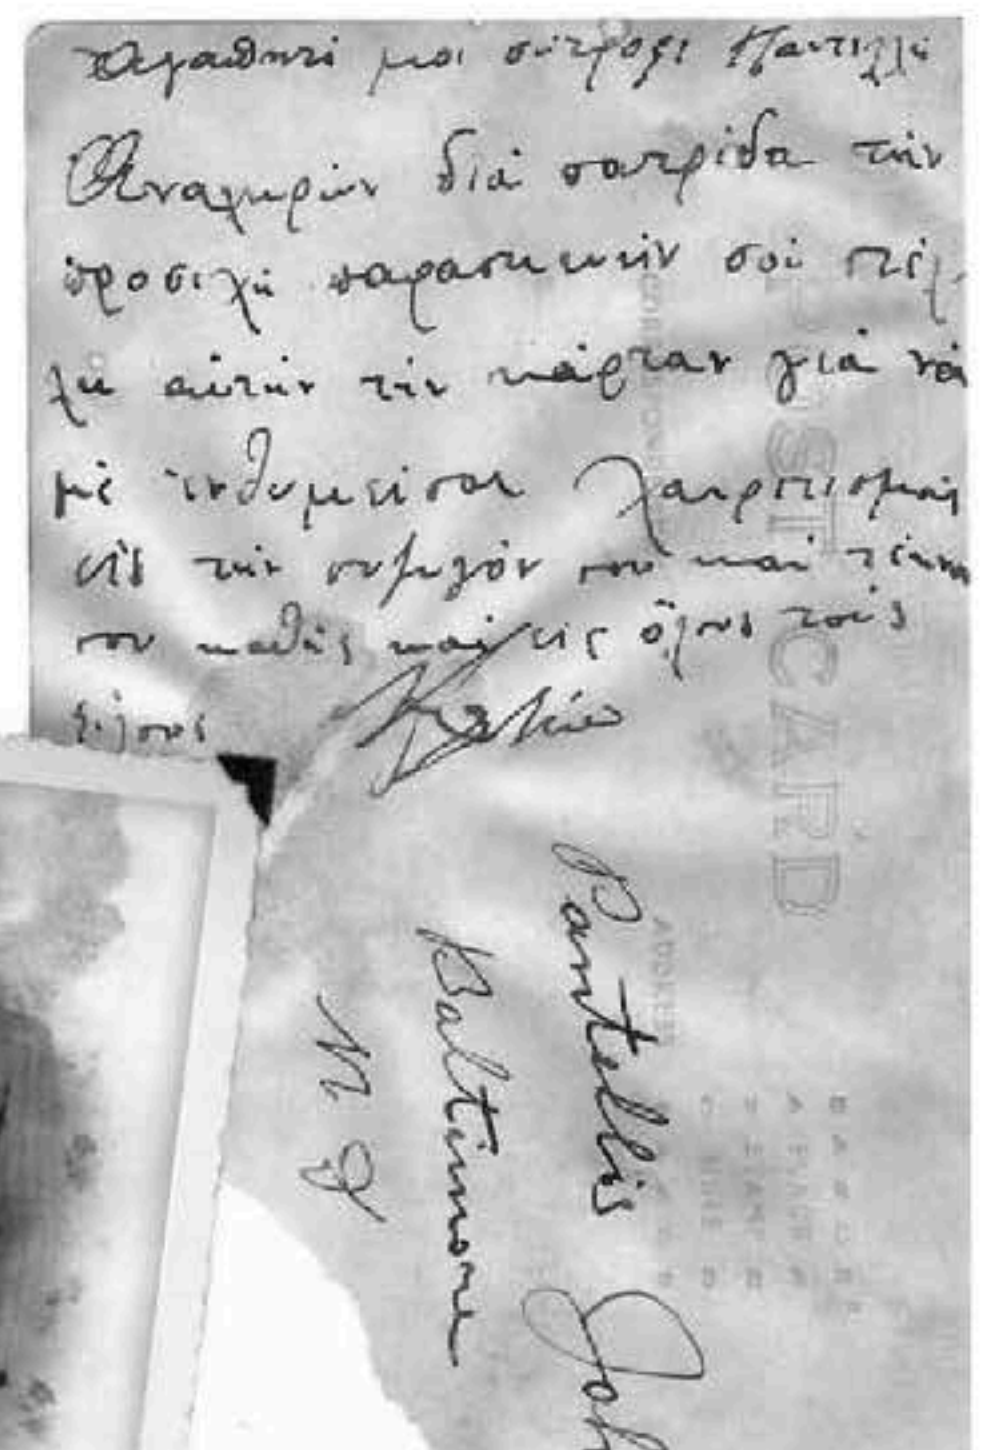 Ἀγαπητέ μοι σύντροφε Παντελλῆ
Ἀναχωρῶν διὰ πατρίδα τὴν
προσεχῆ παρασκευὴν σοὶ στέλ
λω αὐτὴν τὴν κάρταν γιὰ νὰ
μὲ ἐνθυμεῖσαι χαιρετισμοὺς
εἰς τὴν συζυγόν σου καὶ τέκνα
σου καθὼς καὶ εἰς ὅλους τοὺς
φίλους
POST CARD
ADDRESS
Pantellis Joh
Baltimore
M d